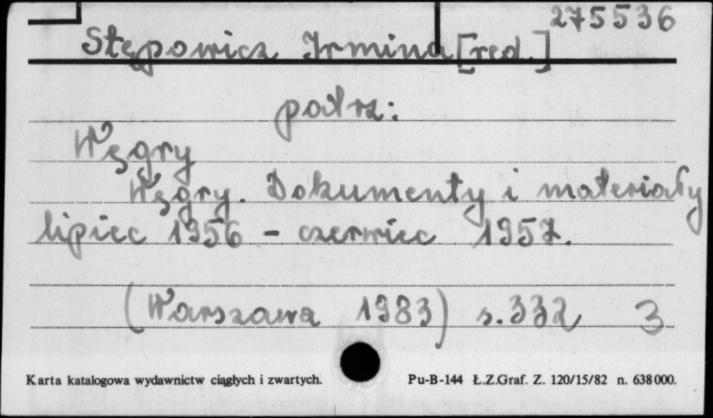 275536
Stępowicz Irmina [red.]
patrz:
Węgry
Węgry. Dokumenty i materiały
lipiec 1956 - czerwiec 1957.
(Warszawa 1983) s.332 3
Karta katalogowa wydawnictw ciągłych i zwartych. Pu-B-144 Ł.Z.Graf. Z. 120/15/82 n. 638000.